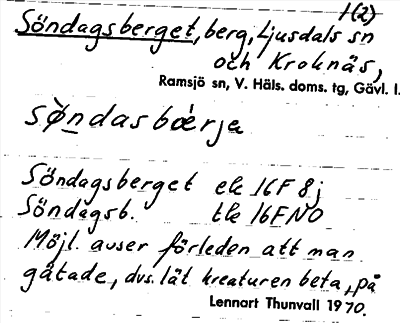 1(2)
Söndagsberget, berg, Ljusdals sn
och Kroknäs,
Ramsjö sn, V. Häls. doms. tg, Gävl. l.
sø̀ndasbærja
Söndagsberget ek 16F 8j
Söndagsb. tk 16FNO
Möjl. avser förleden att man
gätade, dvs. lät kreaturen beta, på
Lennart Thunvall 1970.